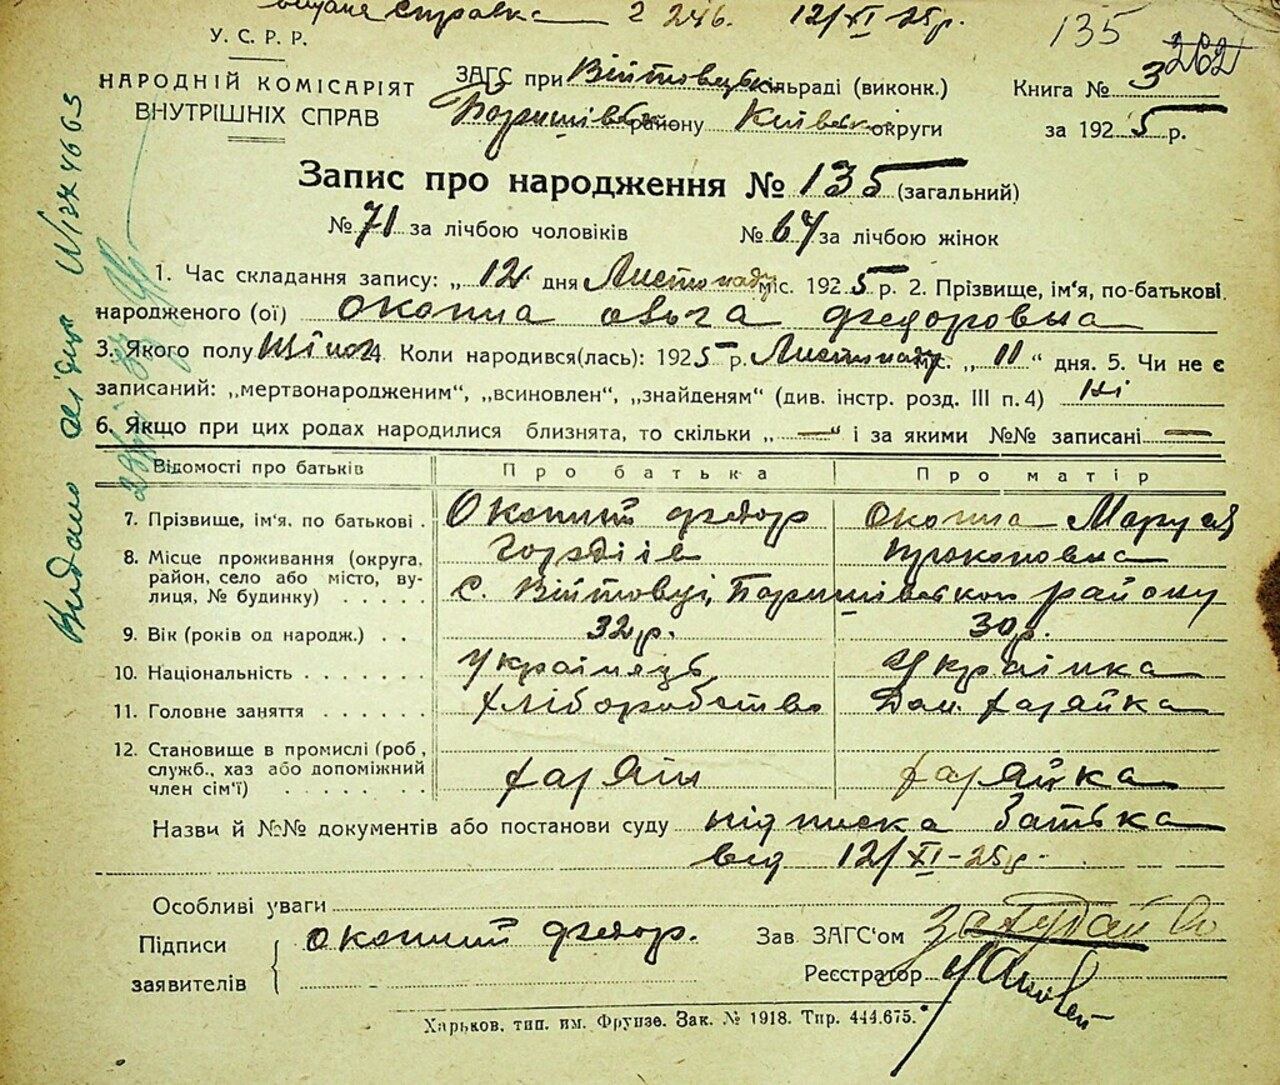 видана справка 2 246. 12/XI-25р.
135 262
У. С. Р. Р.
НАРОДНІЙ КОМІСАРІЯТ
ВНУТРІШНІХ СПРАВ
ЗАГС при Війтовецькій сільраді (виконк.)
Баришівськ району Київськ округи
Книга № 3
за 1925 р.
Запис про народження № 135 (загальний)
№ 71 за лічбою чоловіків № 64 за лічбою жінок
1. Час складання запису: „12" дня Листопаду міс. 1925 р. 2. Прізвище, ім'я, по-батькові
народженого (ої) Окопна Ольга Федоровна
3. Якого полу Жіноч 4. Коли народився(лась): 1925 р. Листопаду міс. „11" дня. 5. Чи не є
записаний: „мертвонародженим", „всиновлен", „знайденям" (див. інстр. розд. III п. 4) ні
6. Якщо при цих родах народилися близнята, то скільки „—" і за якими №№ записані —
Відомості про батьків Про батька Про матір
7. Прізвище, ім'я, по батькові . Окопний Федор Окопна Маруся
Гордіїв Прокоповна
8. Місце проживання (округа,
район, село або місто, ву-
лиця, № будинку) . . . . . с. Війтовці, Баришівського району
9. Вік (років од народж.) . . 32 р. 30 р.
10. Національність . . . . . . . Українець Українка
11. Головне заняття . . . . . . Хліборобство Дом. хазяйка
12. Становище в промислі (роб.,
служб., хаз або допоміжний
член сім'ї) . . . . . . . хазяїн хазяйка
Назви й №№ документів або постанови суду підписка батька
від 12/XI-25р.
Особливі уваги
Підписи
заявителів
Окопний Федор.
Зав ЗАГС'ом
Реєстратор
Харьков. тип. им. Фрунзе. Зак. № 1918. Тир. 444.675.
Видано